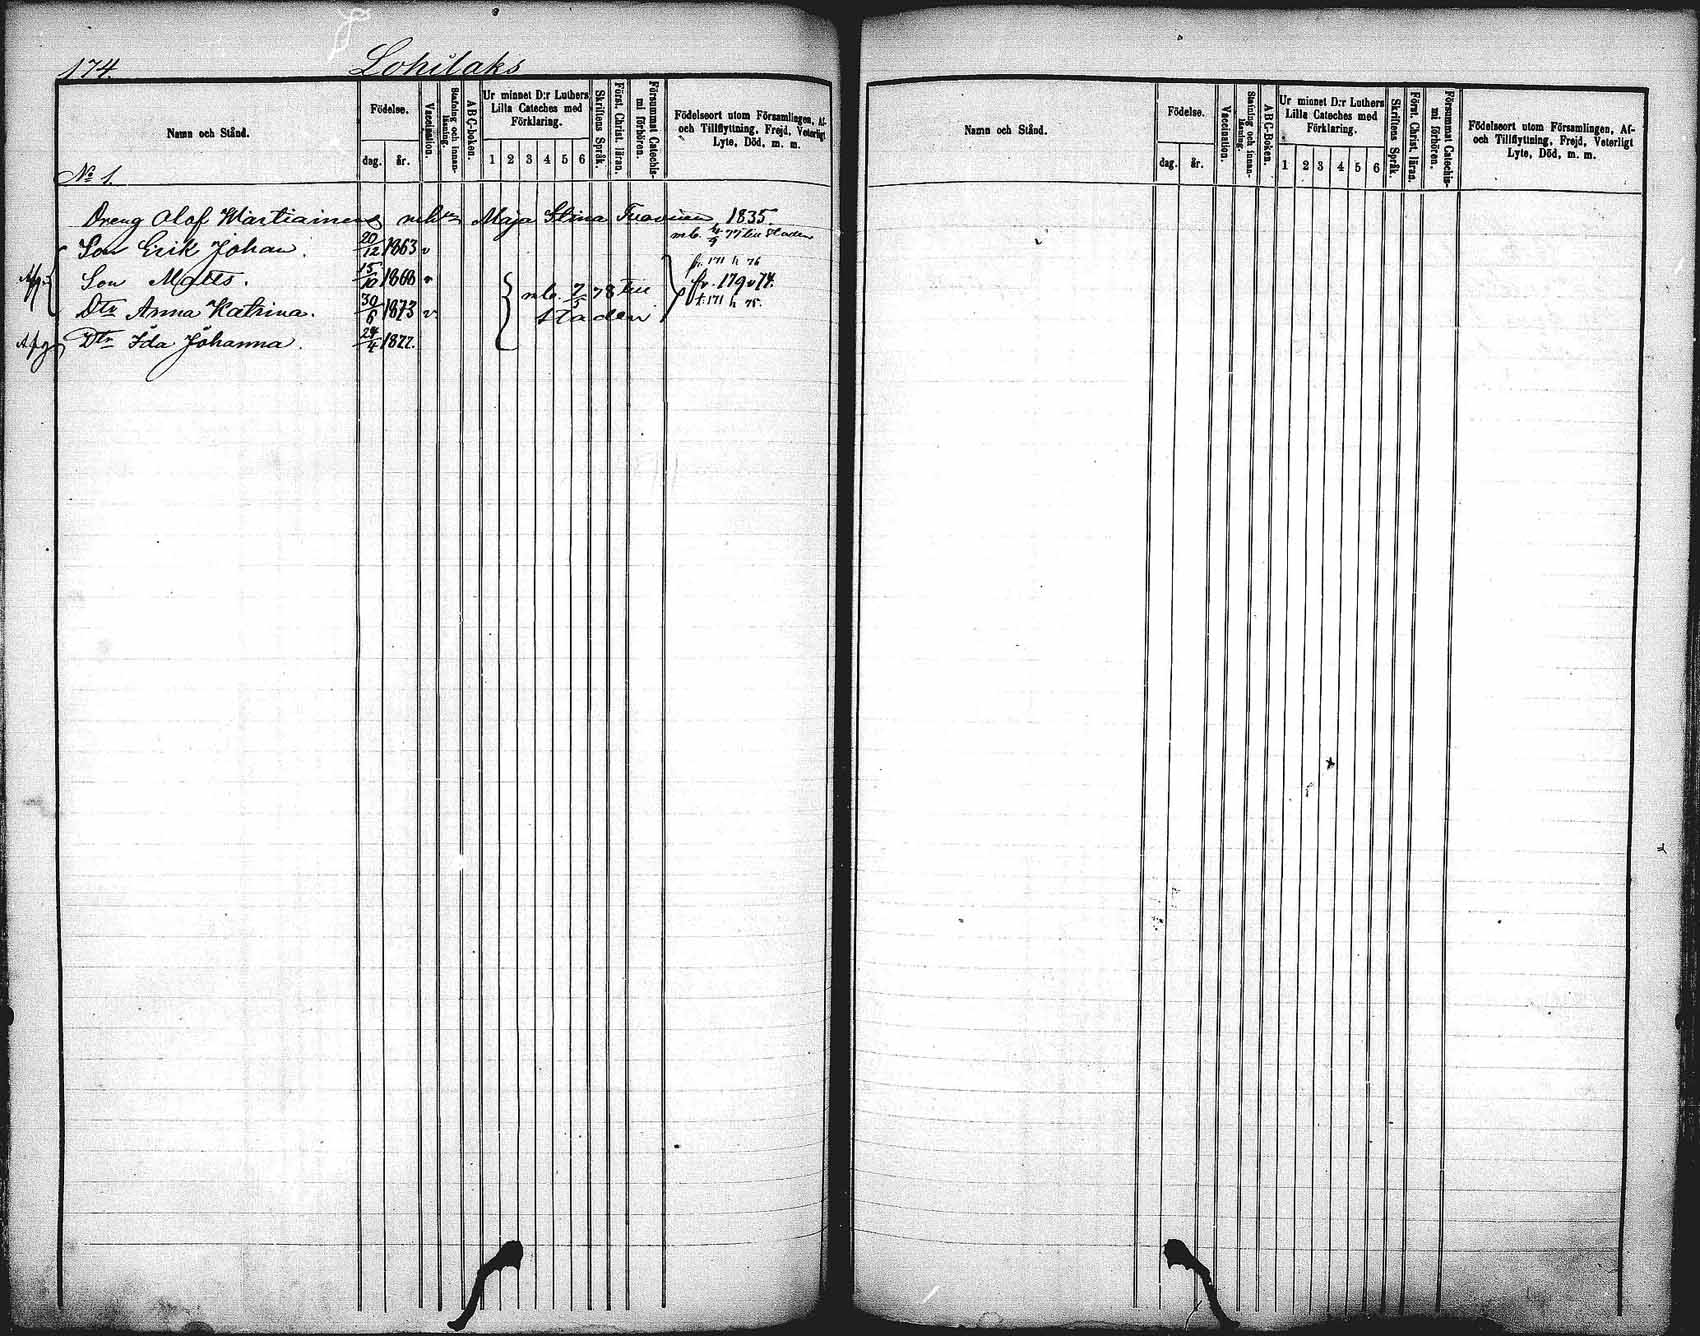 174. Lohilaks
Namn och Stånd.
Födelse.
dag. år.
Vaccination.
Stafning och innan-läsning.
ABC-boken.
Ur minnet D:r Luthers
Lilla Cateches med
Förklaring.
1 2 3 4 5 6
Skriftens Språk.
Först. Christ. läran.
Försummat Catechis-
mi förhören.
Födelseort utom Församlingen, Af-
och Tillflyttning, Frejd, Veterligt
Lyte, Död, m. m.
No 1.
Dreng Olof Martiainens Maja Stina 1835.
mb. 4/9 77 till staden
Son Erik Johan. 20/12 1863 v
fr. 171 h 76
Afg. Son Matts. 15/10 1868 v fr. 179 v 74.
mb. 7/5 78 till
Dtr Anna Katrina. 30/6 1873 v. t. 171 h 75.
staden
Afg Dtr Ida Johanna. 24/4 1877.
Namn och Stånd.
Födelse.
dag. år.
Vaccination.
Stafning och innan-läsning.
ABC-Boken.
Ur minnet D:r Luthers
Lilla Cateches med
Förklaring.
1 2 3 4 5 6
Skriftens Språk.
Först. Christ. läran.
Försummat Catechis-
mi förhören.
Födelseort utom Församlingen, Af-
och Tillflyttning, Frejd, Veterligt
Lyte, Död, m. m.